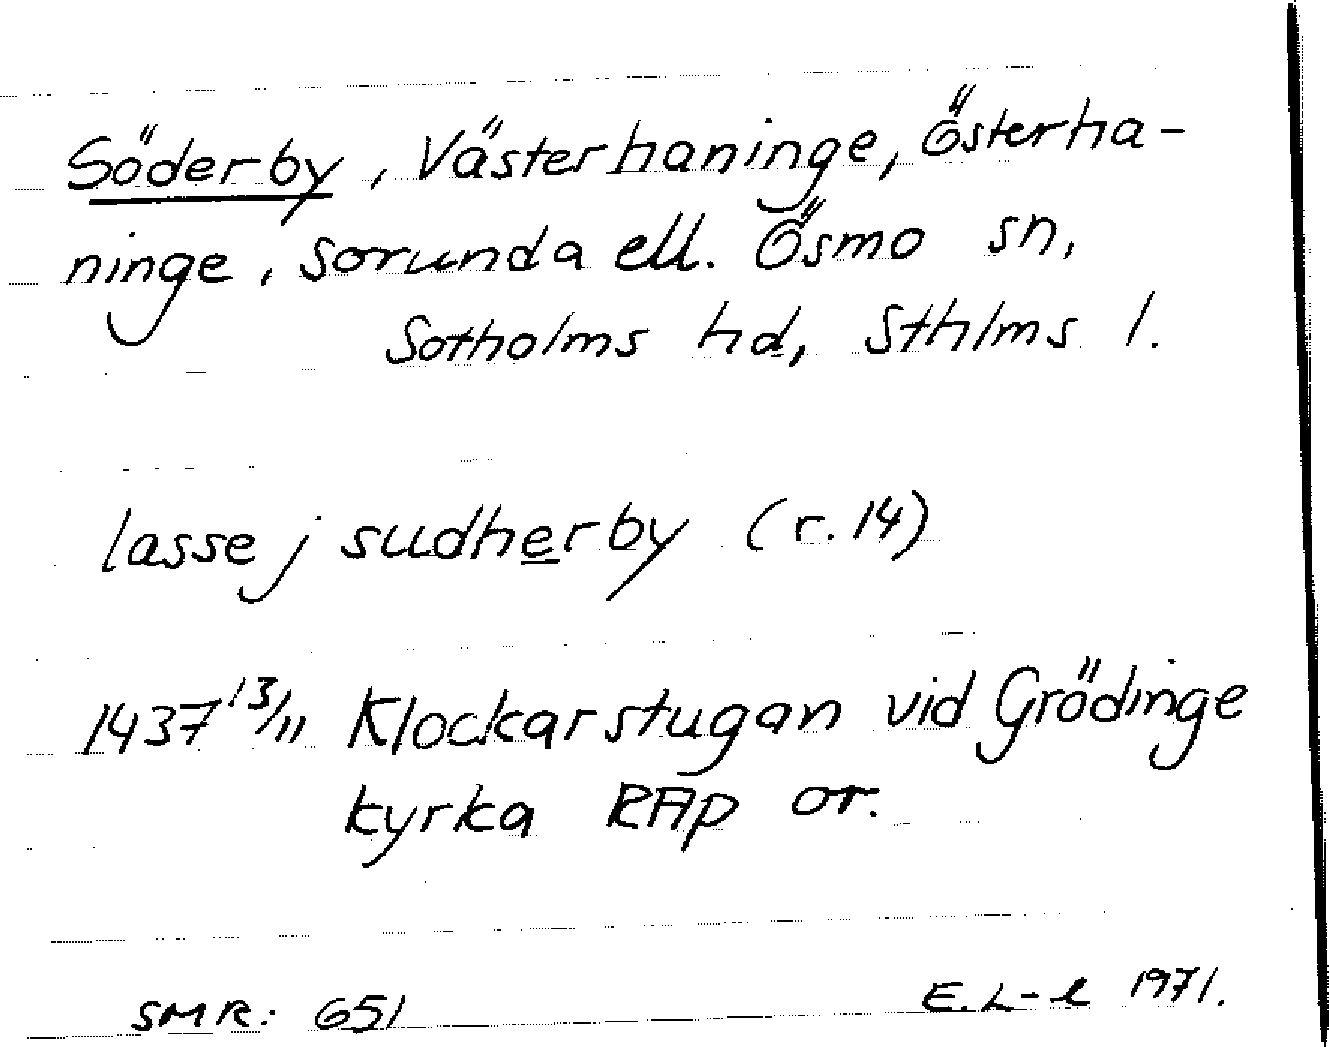 Söderby, Västerhaninge, Österha-
ninge, Sorunda ell. Ösmo sn,
Sotholms hd, Sthlms l.
lasse j sudherby (r. 14)
1437 13/11 Klockarstugan vid Grödinge
kyrka RAp or.
SMR: 651
E. L-l 1971.